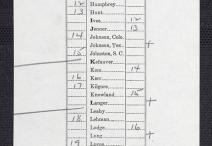 12 Humphrey
13 Hunt
Ives 12
Jenner 13
14 Johnson, Colo.
Johnson, Tex. +
15 Johnston, S. C.
Kefauver
Kem 14
16 Kerr
17 Kilgore
Knowland 15
Langer +
Leahy
18 Lehman
Lodge 16
Long +
19 Lucas